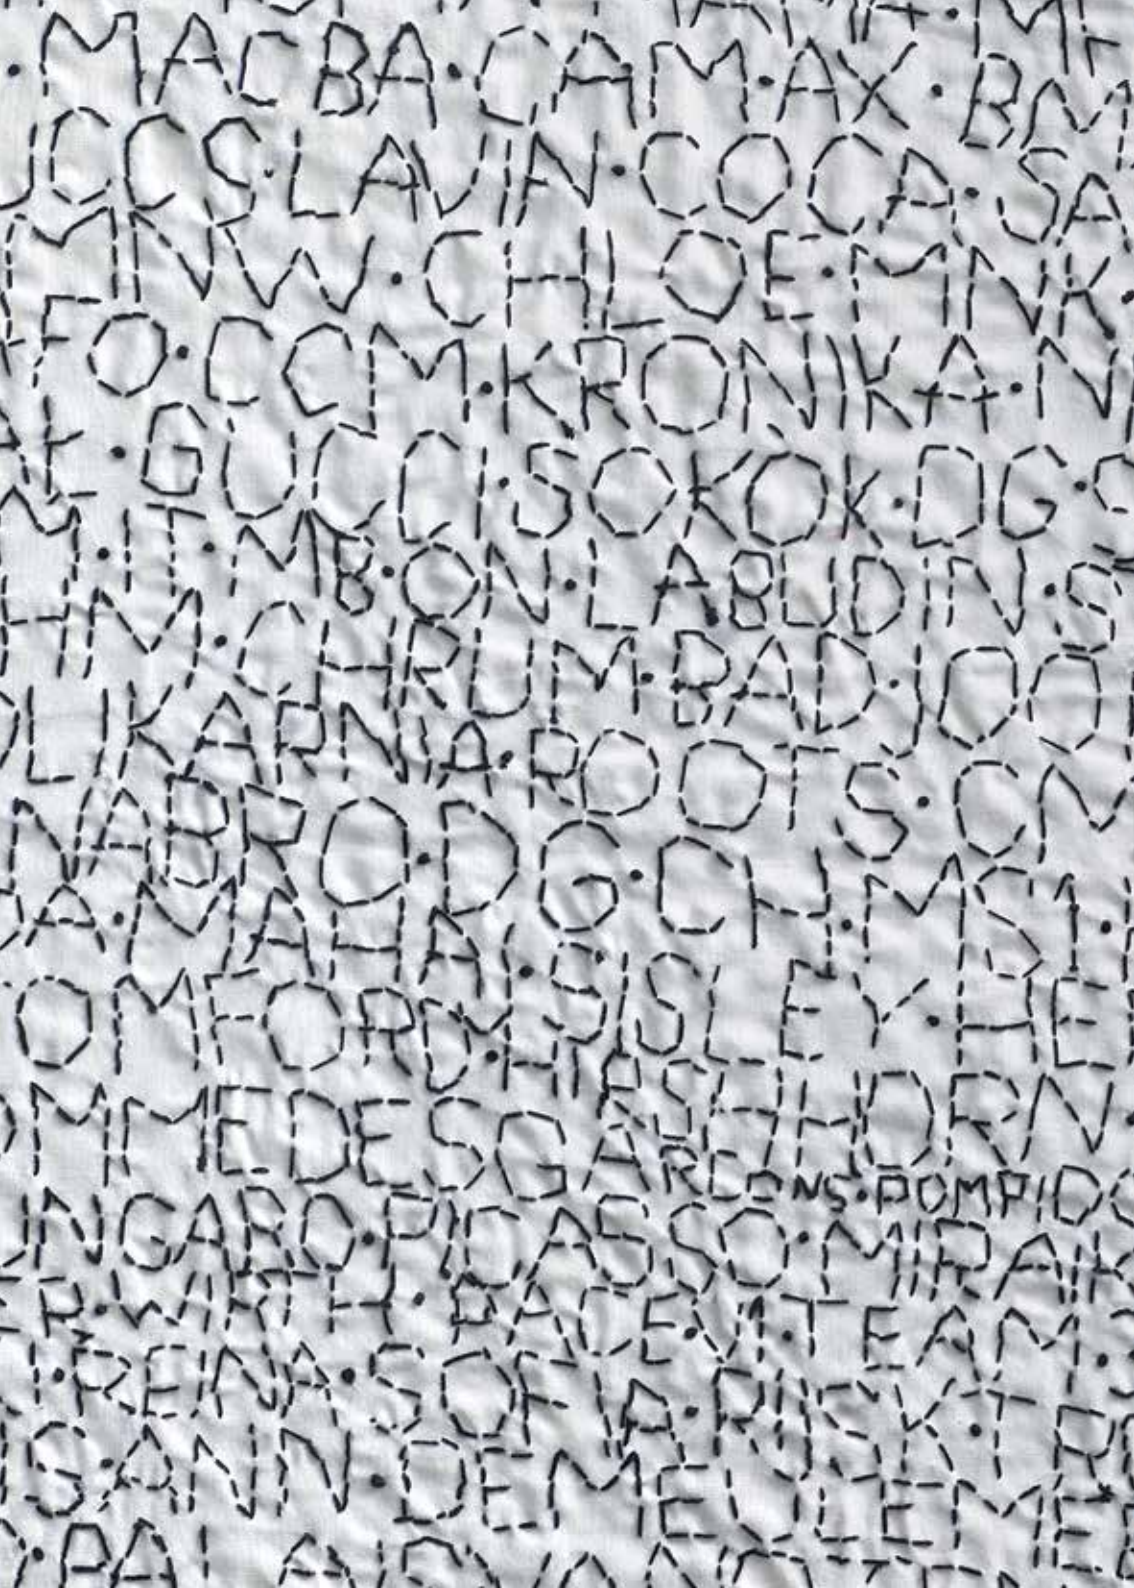 · MACBA · CAMAX · BM
UCCS · LAVIN · COCA · SA
MNW · CHLOE · MNK ·
FO · CCM · KRONIKA · N
· GUCCI · SOKOK · DG ·
M · IT · MBON · LABUDIN · S
HM · CHRUM · BAD · JOO
OLIKARNIA · ROOTS · CN
NABRO · DG · CH · MS1 ·
A · NMAHA · SISLEY · HE
OMFORDY · HIRSCHHORN
OMMEDESGARCONS · POMPIDO
UNGARO · PICASSO · MIRAIK
ER · WIRTH · PACE · V1 · TEAM ·
I · REINA · SOFIA · RISK · TR
GANN · DEMEULEMEE
· PAL